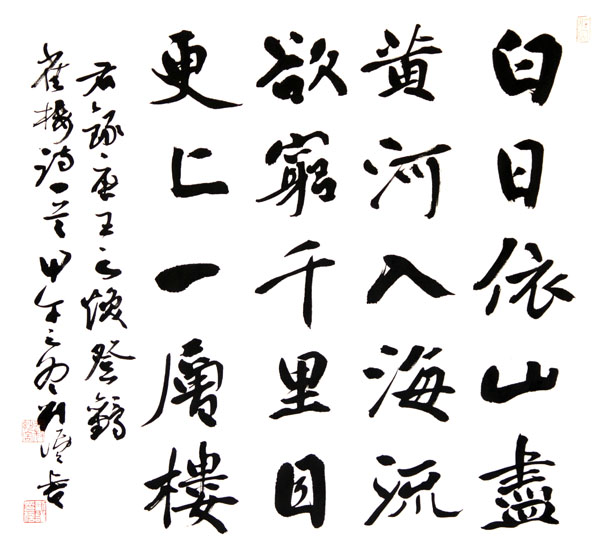 白日依山盡
黄河入海流
欲窮千里目
更上一層樓
右錄唐王之渙登鸛
雀樓詩一首甲午之